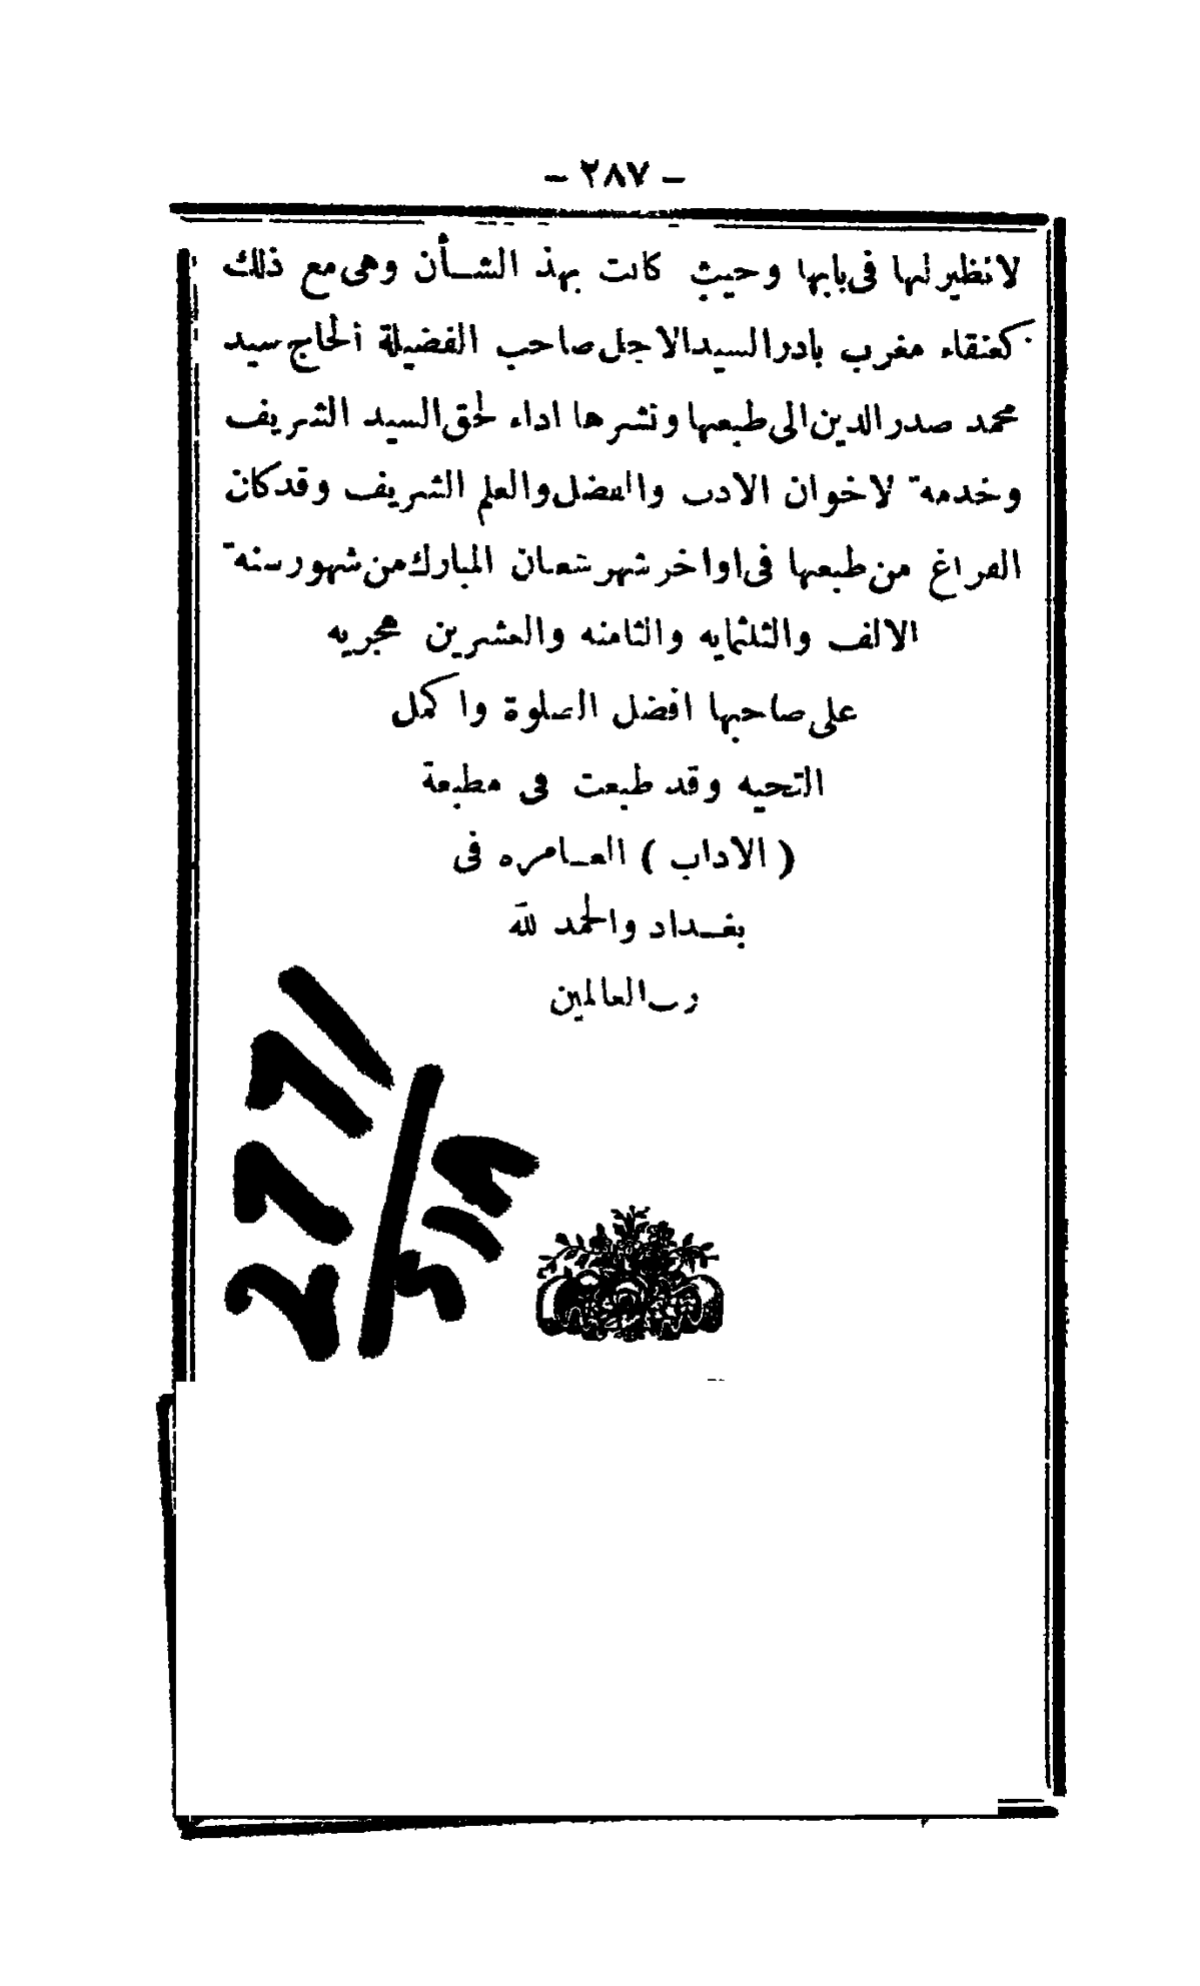 - ٢٨٧ -
لانظير لها فى بابها وحيث كانت بهذ الشــأن وهى مع ذلك
كعنقاء مغرب بادر السيد الاجل صاحب الفضيلة الحاج سيد
محمد صدر الدين الى طبعها ونشرها اداء لحق السيد الشريف
وخدمة لاخوان الادب والفضل والعلم الشريف وقد كان
الفراغ من طبعها فى اواخر شهر شعبان المبارك من شهور سنة
الالف والثلثمايه والثامنه والعشرين هجريه
على صاحبها افضل الصلوة واكمل
التحيه وقد طبعت فى مطبعة
( الاداب ) العــامره فى
بغــداد والحمد لله
رب العالمين